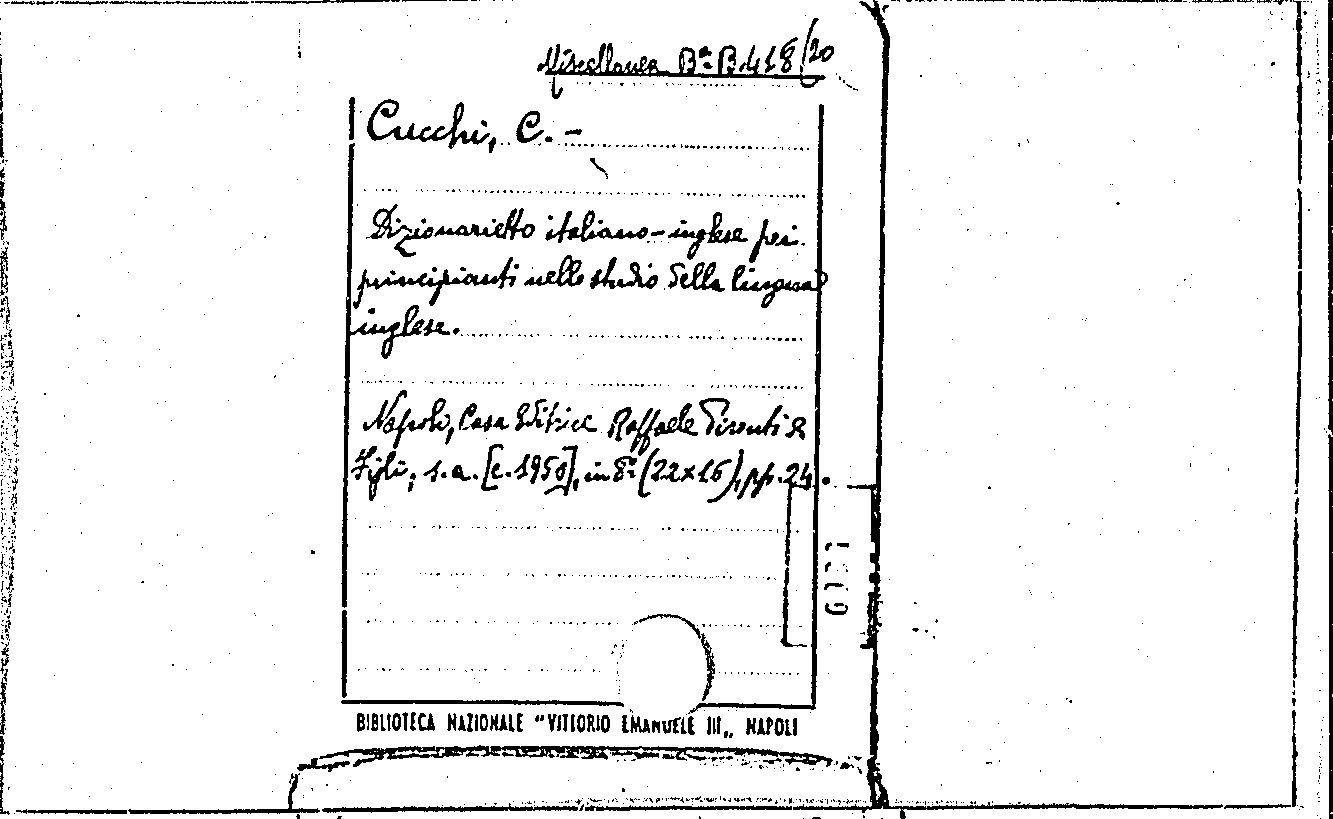 Miscellanea Bª B.418/20
Cucchi, C. -
Dizionarietto italiano-inglese pei
principianti nello studio della lingua
inglese.
Napoli, Casa Editrice Raffaele Pironti &
Figli, s.a. [c. 1950], in 8º (22x16), pp. 24.
BIBLIOTECA NAZIONALE "VITTORIO EMANUELE III„ NAPOLI